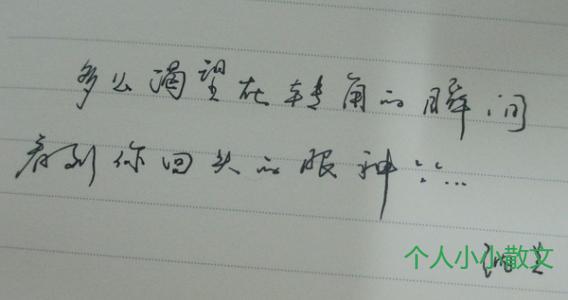 多么渴望在转角的瞬间
看到你回头的眼神……
个人小小散文